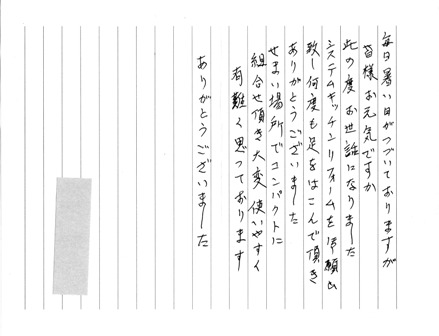 毎日暑い日がつづいておりますが
皆様お元気ですか
此の度お世話になりました
システムキッチンリフォームを御願い
致し何度も足をはこんで頂き
ありがとうございました
せまい場所でコンパクトに
組合せ頂き大変使いやすく
有難く思っております
ありがとうございました